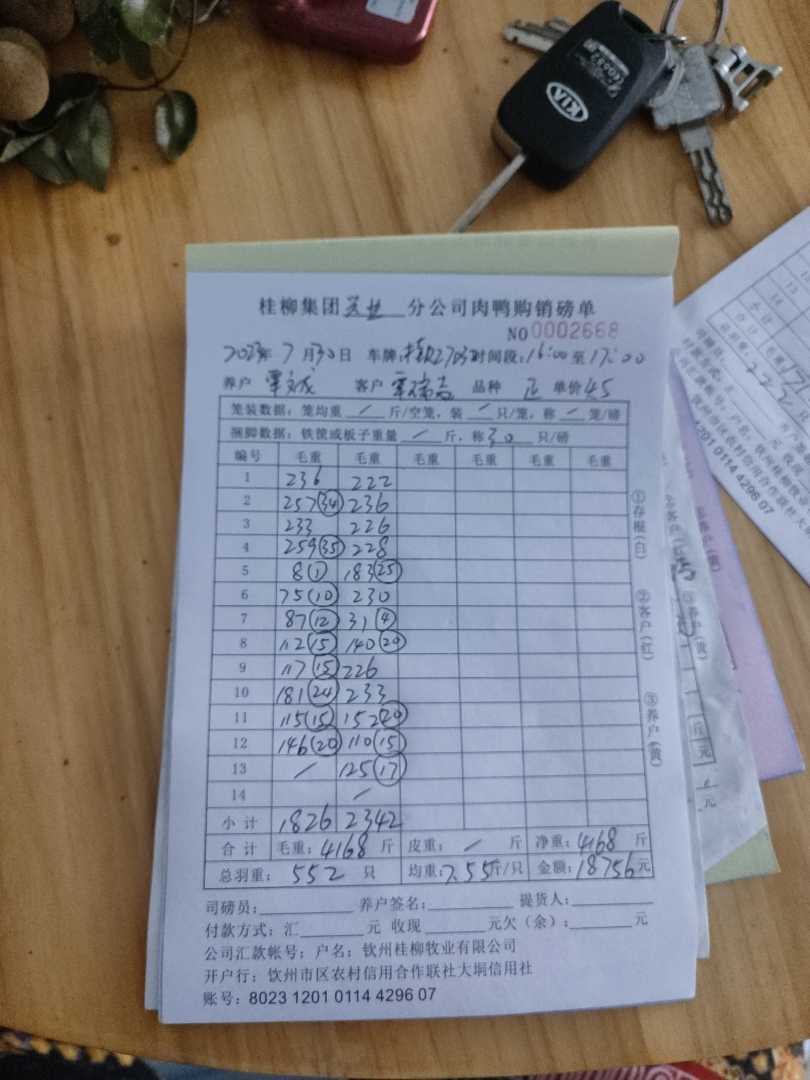 KIA
桂柳集团 分公司肉鸭购销磅单
NO 0002668
2023年 7 月 30 日 车牌: 时间段: 16:00 至 17:00
养户 覃 客户 覃 品种 正 单价 4.5
笼装数据: 笼均重 / 斤/空笼, 装 / 只/笼, 称 / 笼/磅
捆脚数据: 铁筐或板子重量 / 斤, 称 30 只/磅
编号 毛重 毛重 毛重 毛重 毛重 毛重
1 236 222
2 257 (34) 236
3 233 226
4 259 (35) 228
5 8 (1) 183 (25)
6 75 (10) 230
7 87 (12) 31 (4)
8 112 (15) 140 (20)
9 117 (15) 226
10 181 (24) 233
11 115 (15) 152 (20)
12 146 (20) 110 (15)
13 / 125 (17)
14 /
小计 1826 2342
合计 毛重: 4168 斤 皮重: / 斤 净重: 4168 斤
总羽重: 552 只 均重: 7.55 斤/只 金额: 18756 元
①存根(白)
②客户(红)
③养户(黄)
司磅员: 养户签名: 提货人:
付款方式: 汇 元 收现 元欠(余): 元
公司汇款帐号: 户名: 钦州桂柳牧业有限公司
开户行: 钦州市区农村信用合作联社大垌信用社
账号: 8023 1201 0114 4296 07